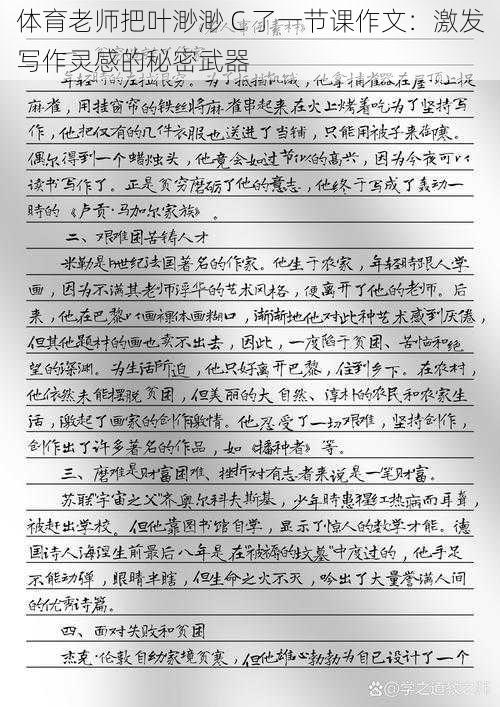 体育老师把叶渺渺 C 了一节课作文：激发
写作灵感的秘密武器
年轻时的左拉很穷。为了抵挡饥饿，他拿捕雀器在屋顶上捉
麻雀，用挂窗帘的铁丝将麻雀串起来在火上烤着吃为了坚持写
作，他把仅有的几件衣服也送进了当铺，只能用被子来御寒。
偶尔得到一个蜡烛头，他竟会如过节似的高兴，因为今夜可以
读书写作了。正是贫穷磨砺了他的意志，他终于写成了轰动一
時的《卢贡·马加尔家族》。
二、艰难困苦铸人才
米勒是19世纪法国著名的作家。他生于农家，年轻時跟人学
画，因为不满其老师浮华的艺术风格，便离开了他的老师。后
来，他在巴黎以画裸体画糊口，渐渐地他对此种艺术感到厌倦，
但其他题材的画也卖不出去，因此，一度陷于贫困、苦恼和绝
望的深渊。为生活所迫，他只好离开巴黎，住到乡下。在农村，
他依然未能摆脱贫困，但美丽的大自然、淳朴的农民和农家生
活，激起了画家的创作激情。他忍受了一切艰难，坚持创作，
创作出了许多著名的作品，如《播种者》等。
三、磨难是财富困难、挫折对有志者来说是一笔财富。
苏联"宇宙之父"齐奥尔科夫斯基，少年時患猩红热病而耳聋，
被赶出学校。但他靠图书馆自学，显示了惊人的数学才能。德
国诗人海涅生前最后八年是在"被褥的坟墓"中度过的，他手足
不能动弹，眼睛半瞎，但生命之火不灭，吟出了大量誉满人间
的优秀诗篇。
四、面对失败和贫困
杰克·伦敦自幼家境贫寒，但他雄心勃勃为自己设计了一个